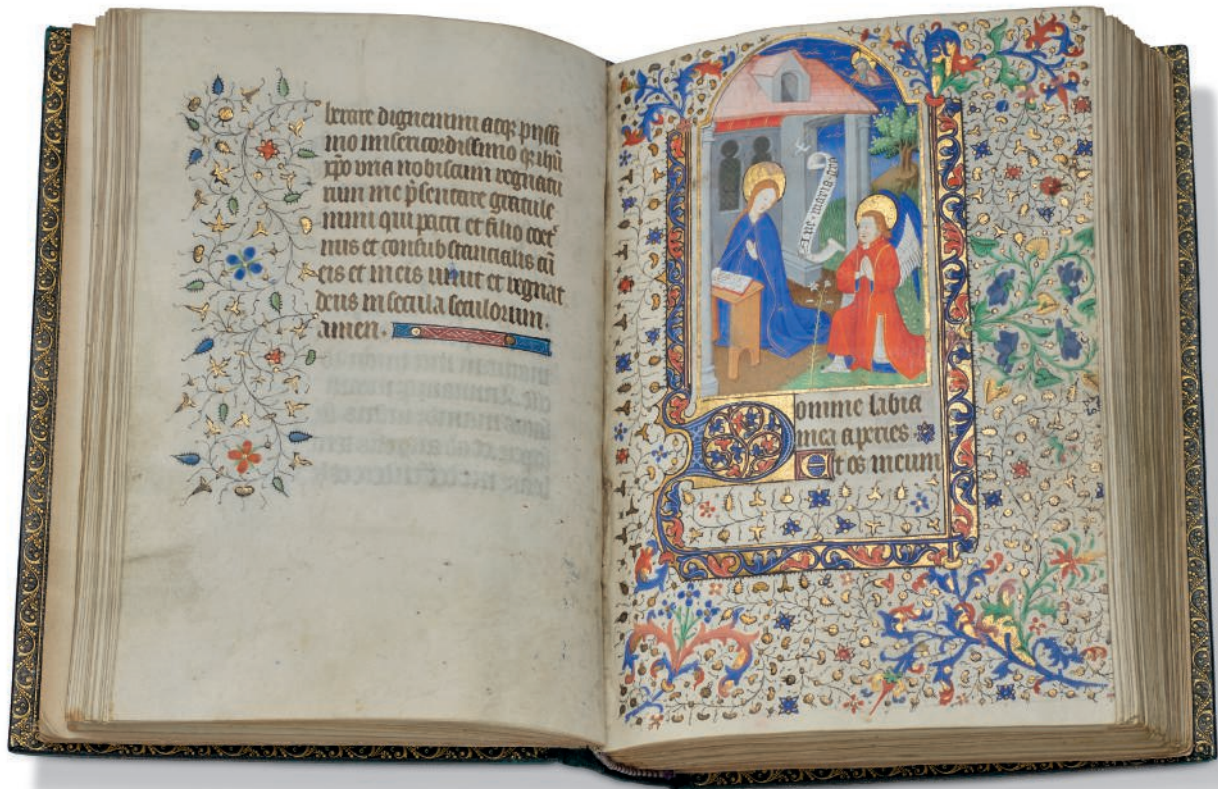 berare digneminı atq; piissi
mo misericordissimo q; ihu
xpo vna nobiscum regnatu
rum me p̄sentare gratule
mini qui patri et filio coet̄
nus et consubstancialis cū
eis et in eis uiuit et regnat
deus in secula seculorum.
amen.
Aue. maria. gra
Domine labia
mea aperies.
Et os meum